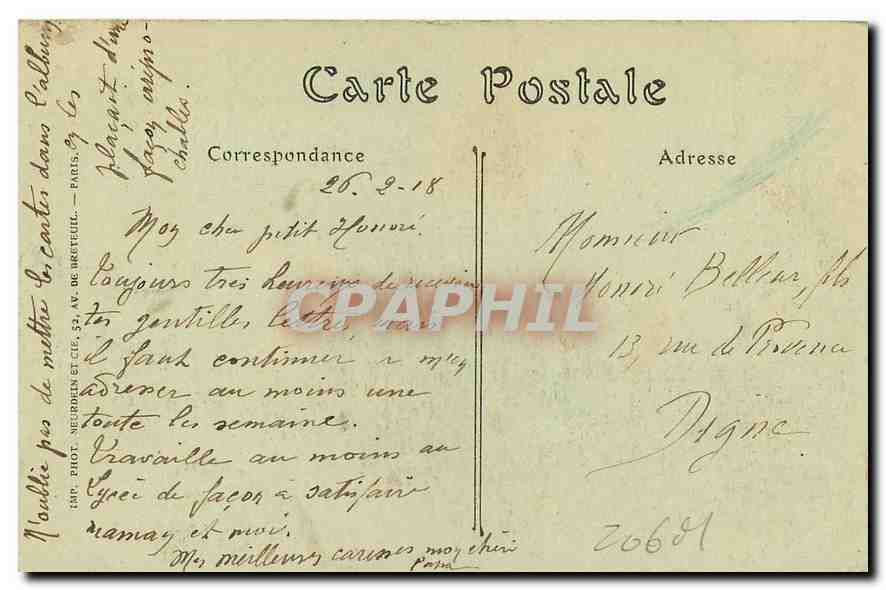 Carte Postale
Correspondance
Adresse
26-2-18
Moy cher petit Honoré.
Toujours tres heureux de recevoir
tes gentilles lettres, mais
il faut continuer a m'ey
adresser au moins une
toute les semaine.
Travaille au moins au
Lycée de façoy à satisfaire
mamay et moi.
Mes meilleures caresses moy chéri
Papa
N'oublie pas de mettre les cartes dans l'album
ey les
plaçant d'une
façoy irrépro-
chables.
IMP. PHOT. NEURDEIN ET CIE, 52, AV. DE BRETEUIL. — PARIS.
Monsieur
Honoré Belleur, fils
13, rue de Provence
Digne
CPAPHIL